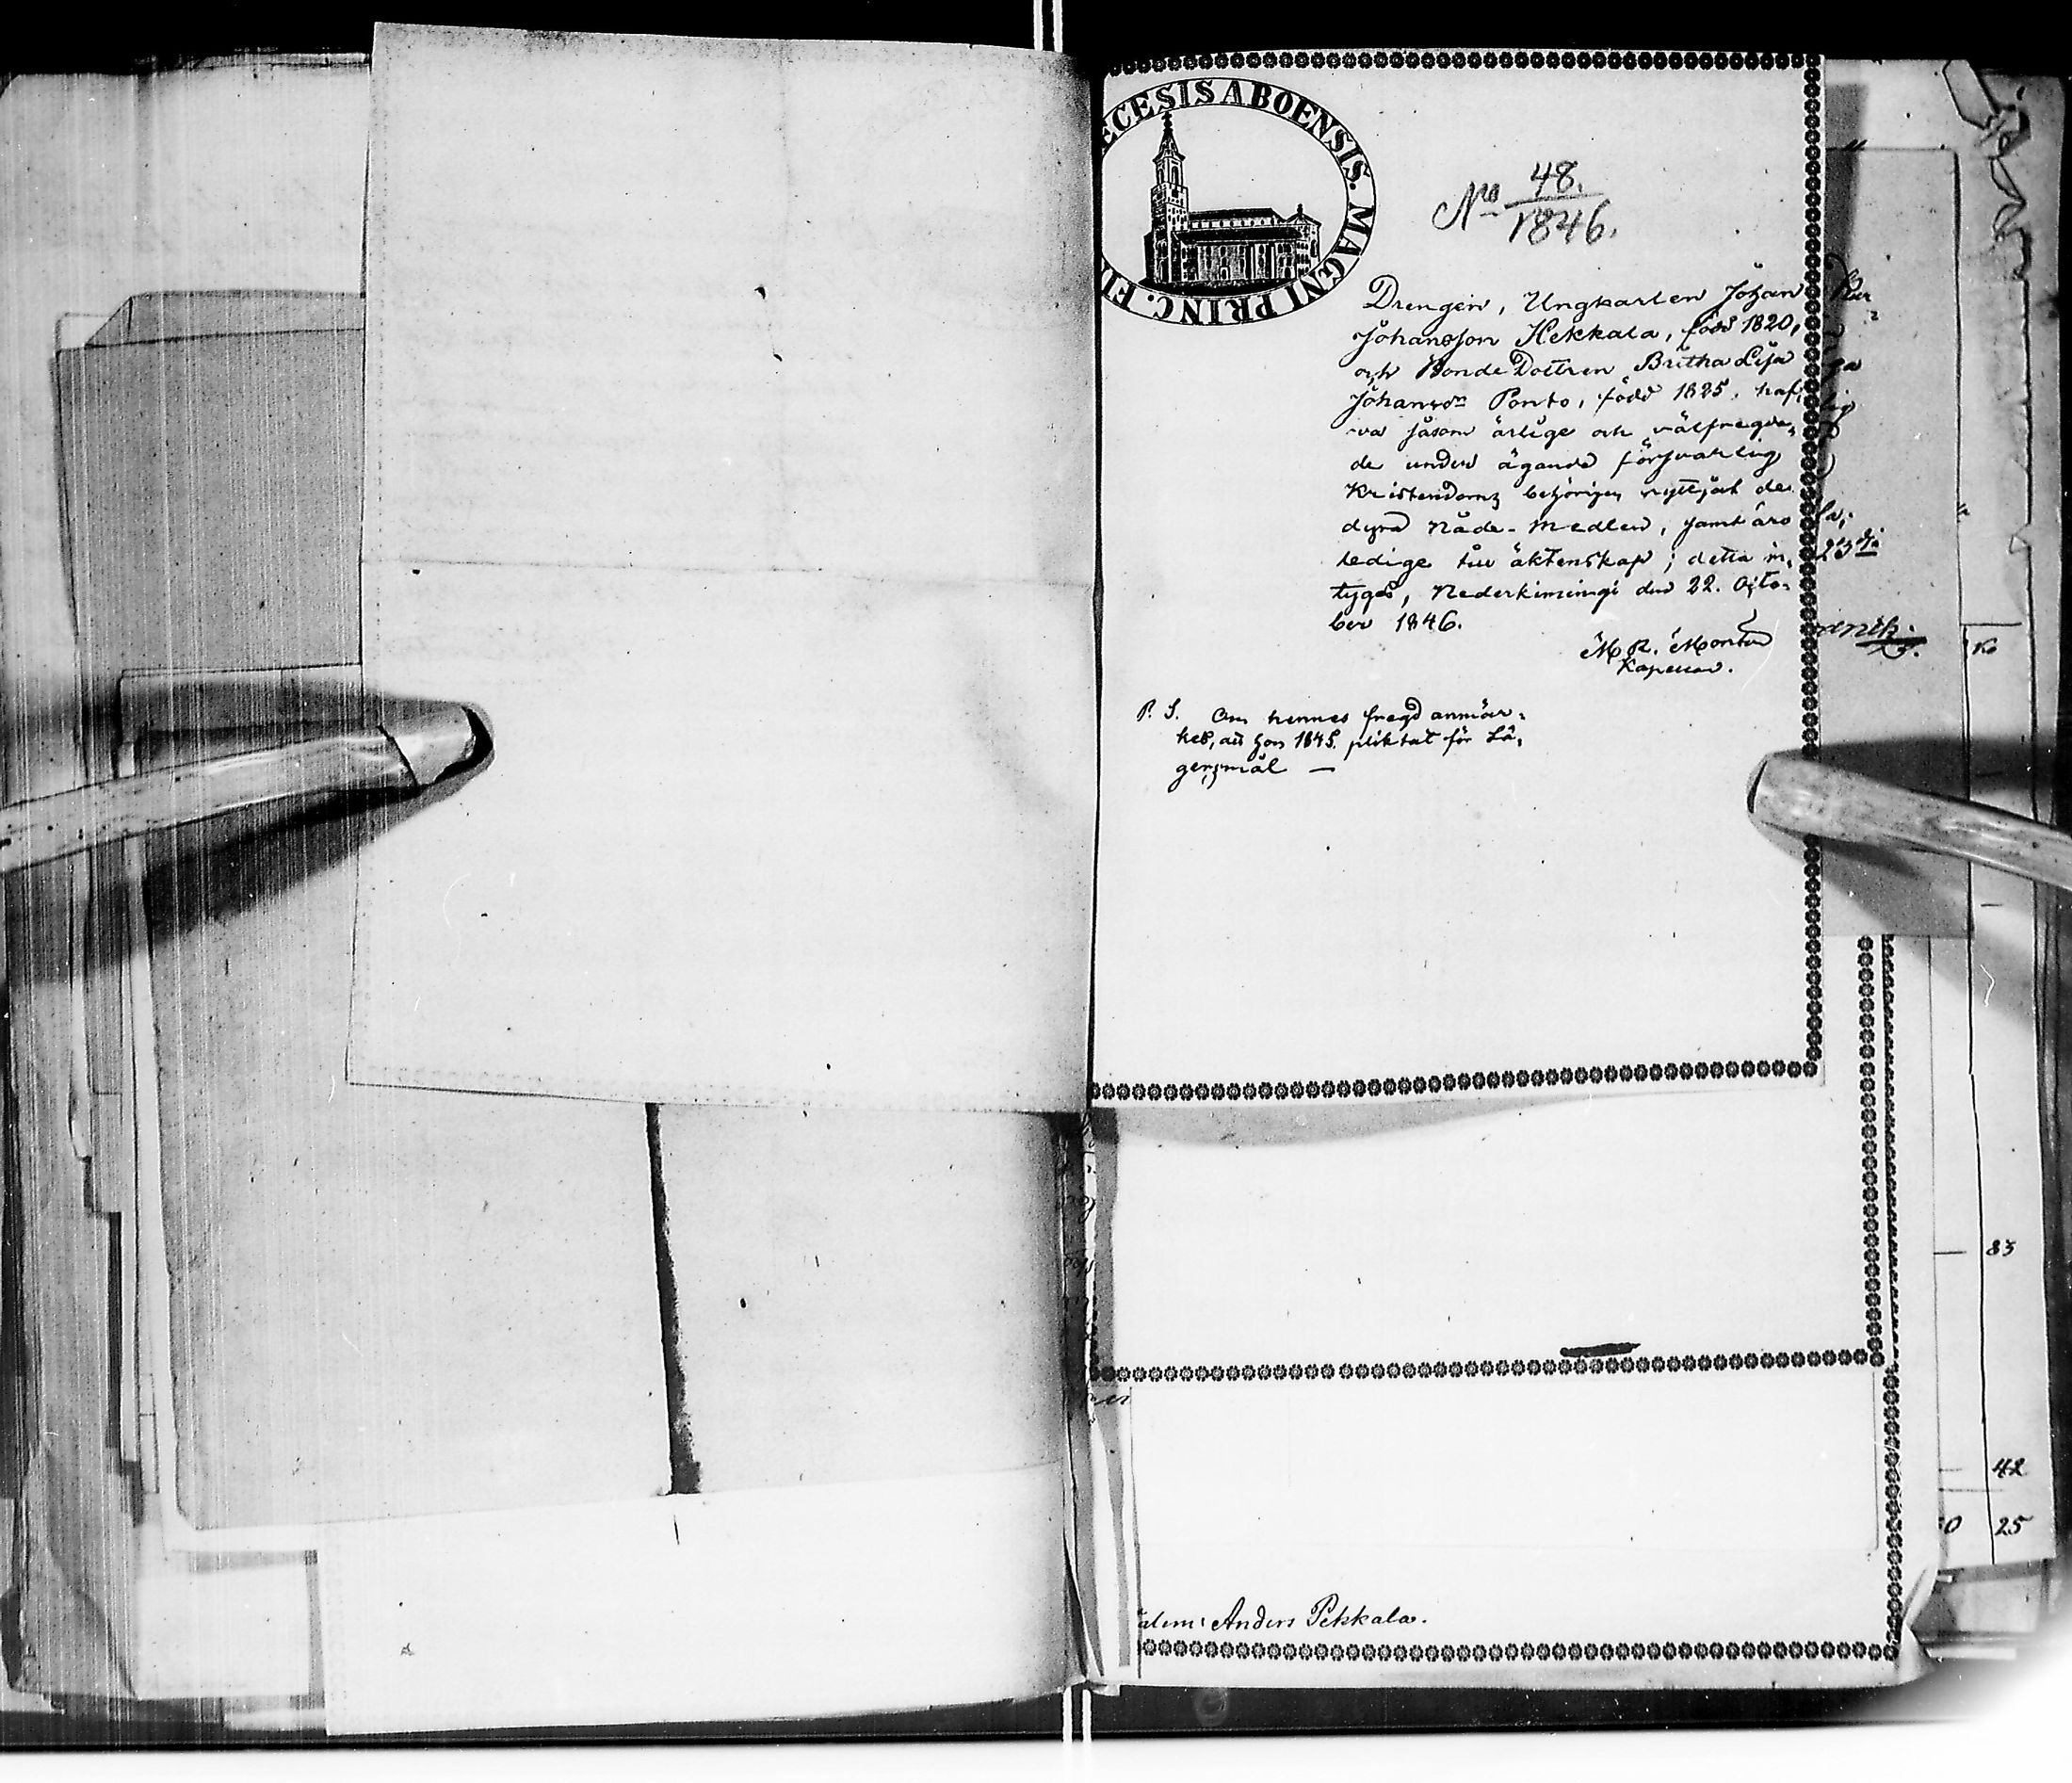 ECESIS ABOENSIS. MAGNI PRINC. FI
No 48.
1846.
Drengen, Ungkarlen Johan
Johansson Hekkala, född 1820,
och BondeDottren Britha Lisa
Johansdr Ponto, född 1825, haf,
va såsom ärlige och välfregda,
de under ägande försvarlig
Kristendoms behörigen nyttjat de
dyra Nåde-Medlen, samt äro
ledige till äktenskap; detta in,
tygas, Nederkimingi den 22. Octo-
ber 1846.
M. R. Montin
Kapellan.
P. S. Om hennes fregd anmär-
kes, att hon 1845 pliktat för Lä,
gersmål —
23
83
42
25
Anders Pekkala.